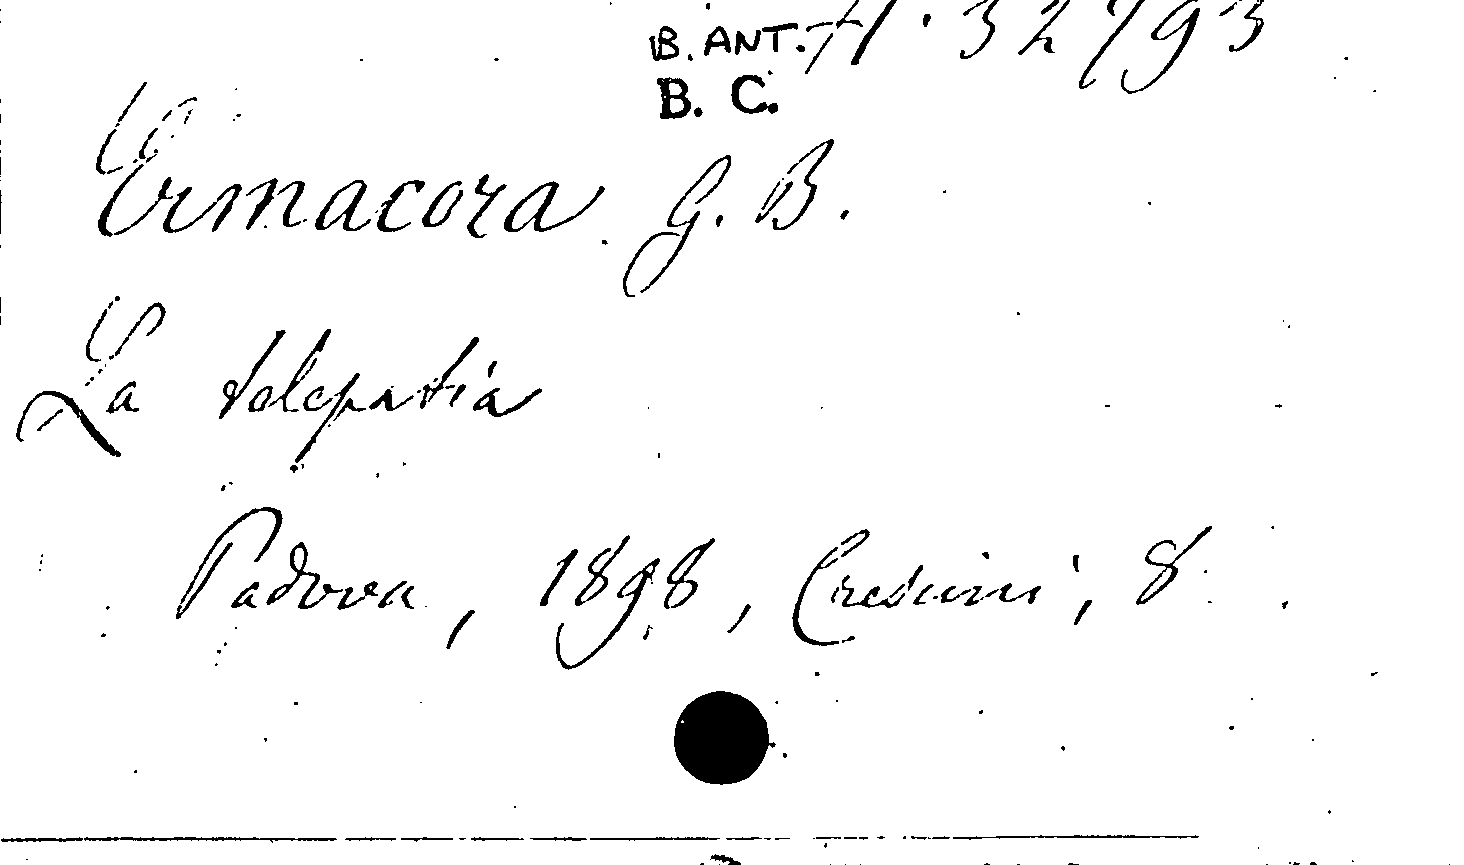 B. ANT. H. 32793
B. C.
Ermacora G. B.
La telepatia
Padova, 1898, Crescini, 8